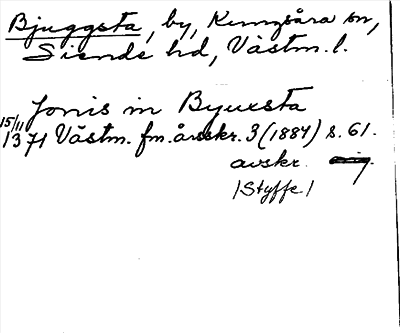 Bjuggsta, by, Kungsåra sn,
Siende hd, Västm. l.
Jonis in Byuxsta
15/11
1371 Västm. fm. årsskr. 3 (1884) s. 61.
avskr.
/Styffe/